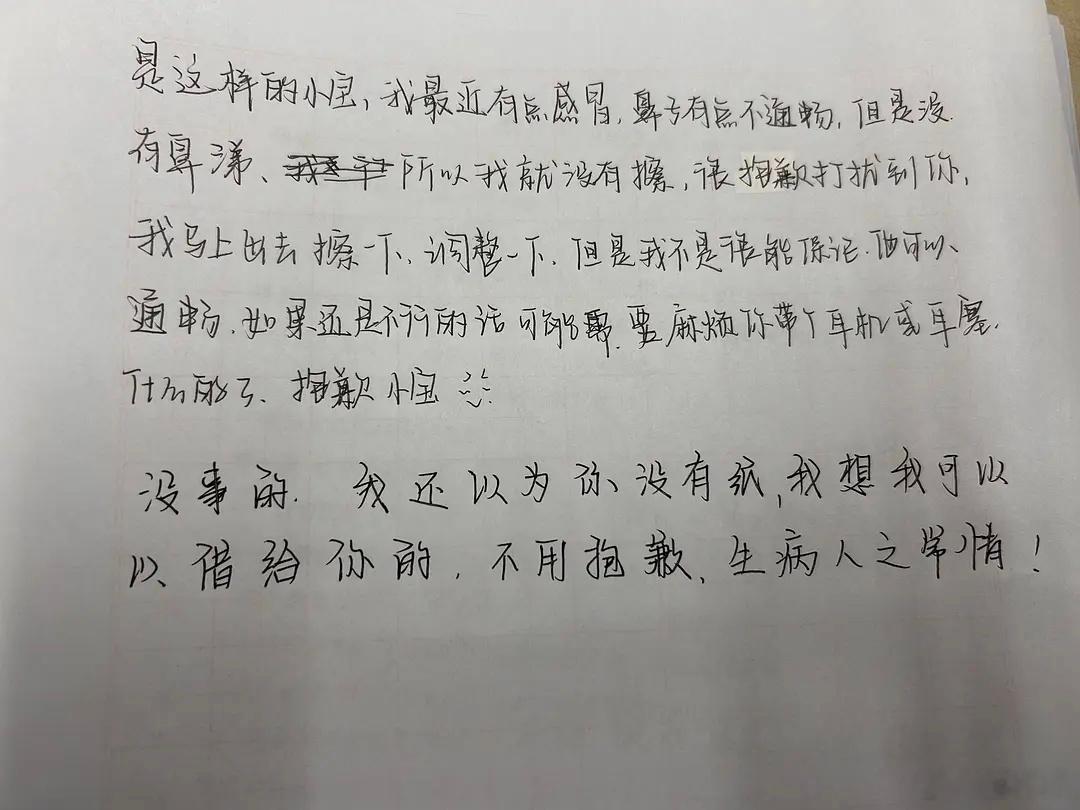 是这样的小宝、我最近有点感冒,鼻子有点不通畅,但是没
有鼻涕、所以我就没有擦,很抱歉打扰到你,
我马上出去擦一下、调整一下、但是我不是很能保证.他可以、
通畅.如果还是不行的话可能需要麻烦你带个耳机或耳塞.
什么的了、抱歉小宝
没事的.我还以为你没有纸,我想我可以
以借给你的,不用抱歉、生病人之常情!